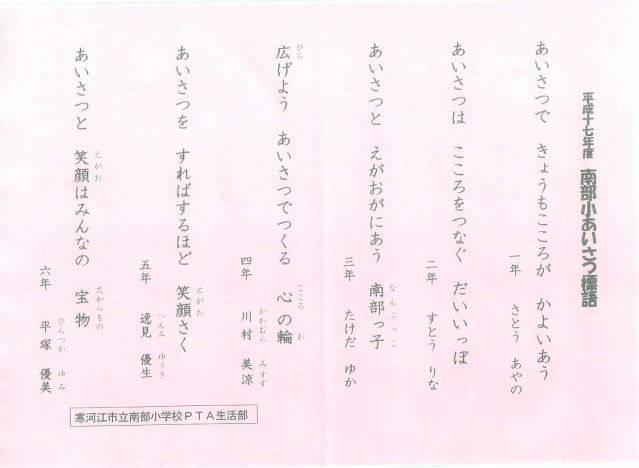 平成十七年度 南部小あいさつ標語
あいさつで きょうもこころが かよいあう
一年 さとう あやの
あいさつは こころをつなぐ だいいっぽ
二年 すとう りな
あいさつと えがおがにあう 南部っ子
なんぶっこ
三年 たけだ ゆか
広げよう あいさつでつくる 心の輪
ひろ こころ わ
四年 川村 美涼
かわむら みすず
あいさつを すればするほど 笑顔さく
えがお
五年 逸見 優生
へんみ ゆうき
あいさつと 笑顔はみんなの 宝物
えがお たからもの
六年 平塚 優美
ひらつか ゆみ
寒河江市立南部小学校PTA生活部